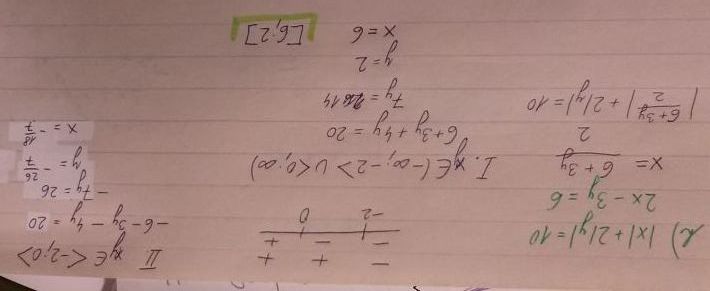 h) |x| + 2|y| = 10
2x - 3y = 6
x = 6 + 3y / 2
|6 + 3y / 2| + 2|y| = 10
- - +
- + +
-2 0
I. y ∈ (-∞; -2> ∪ <0; ∞)
6 + 3y + 4y = 20
7y = 14
y = 2
x = 6 [6; 2]
II y ∈ <-2; 0>
-6 - 3y - 4y = 20
-7y = 26
y = - 26/7
x = - 18/7